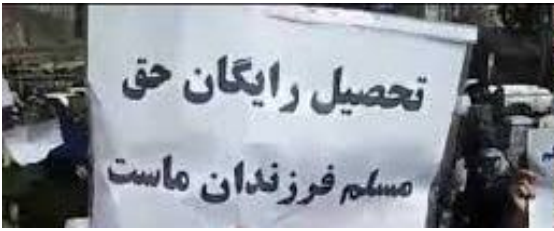 تحصیل رایگان حق
مسلم فرزندان ماست